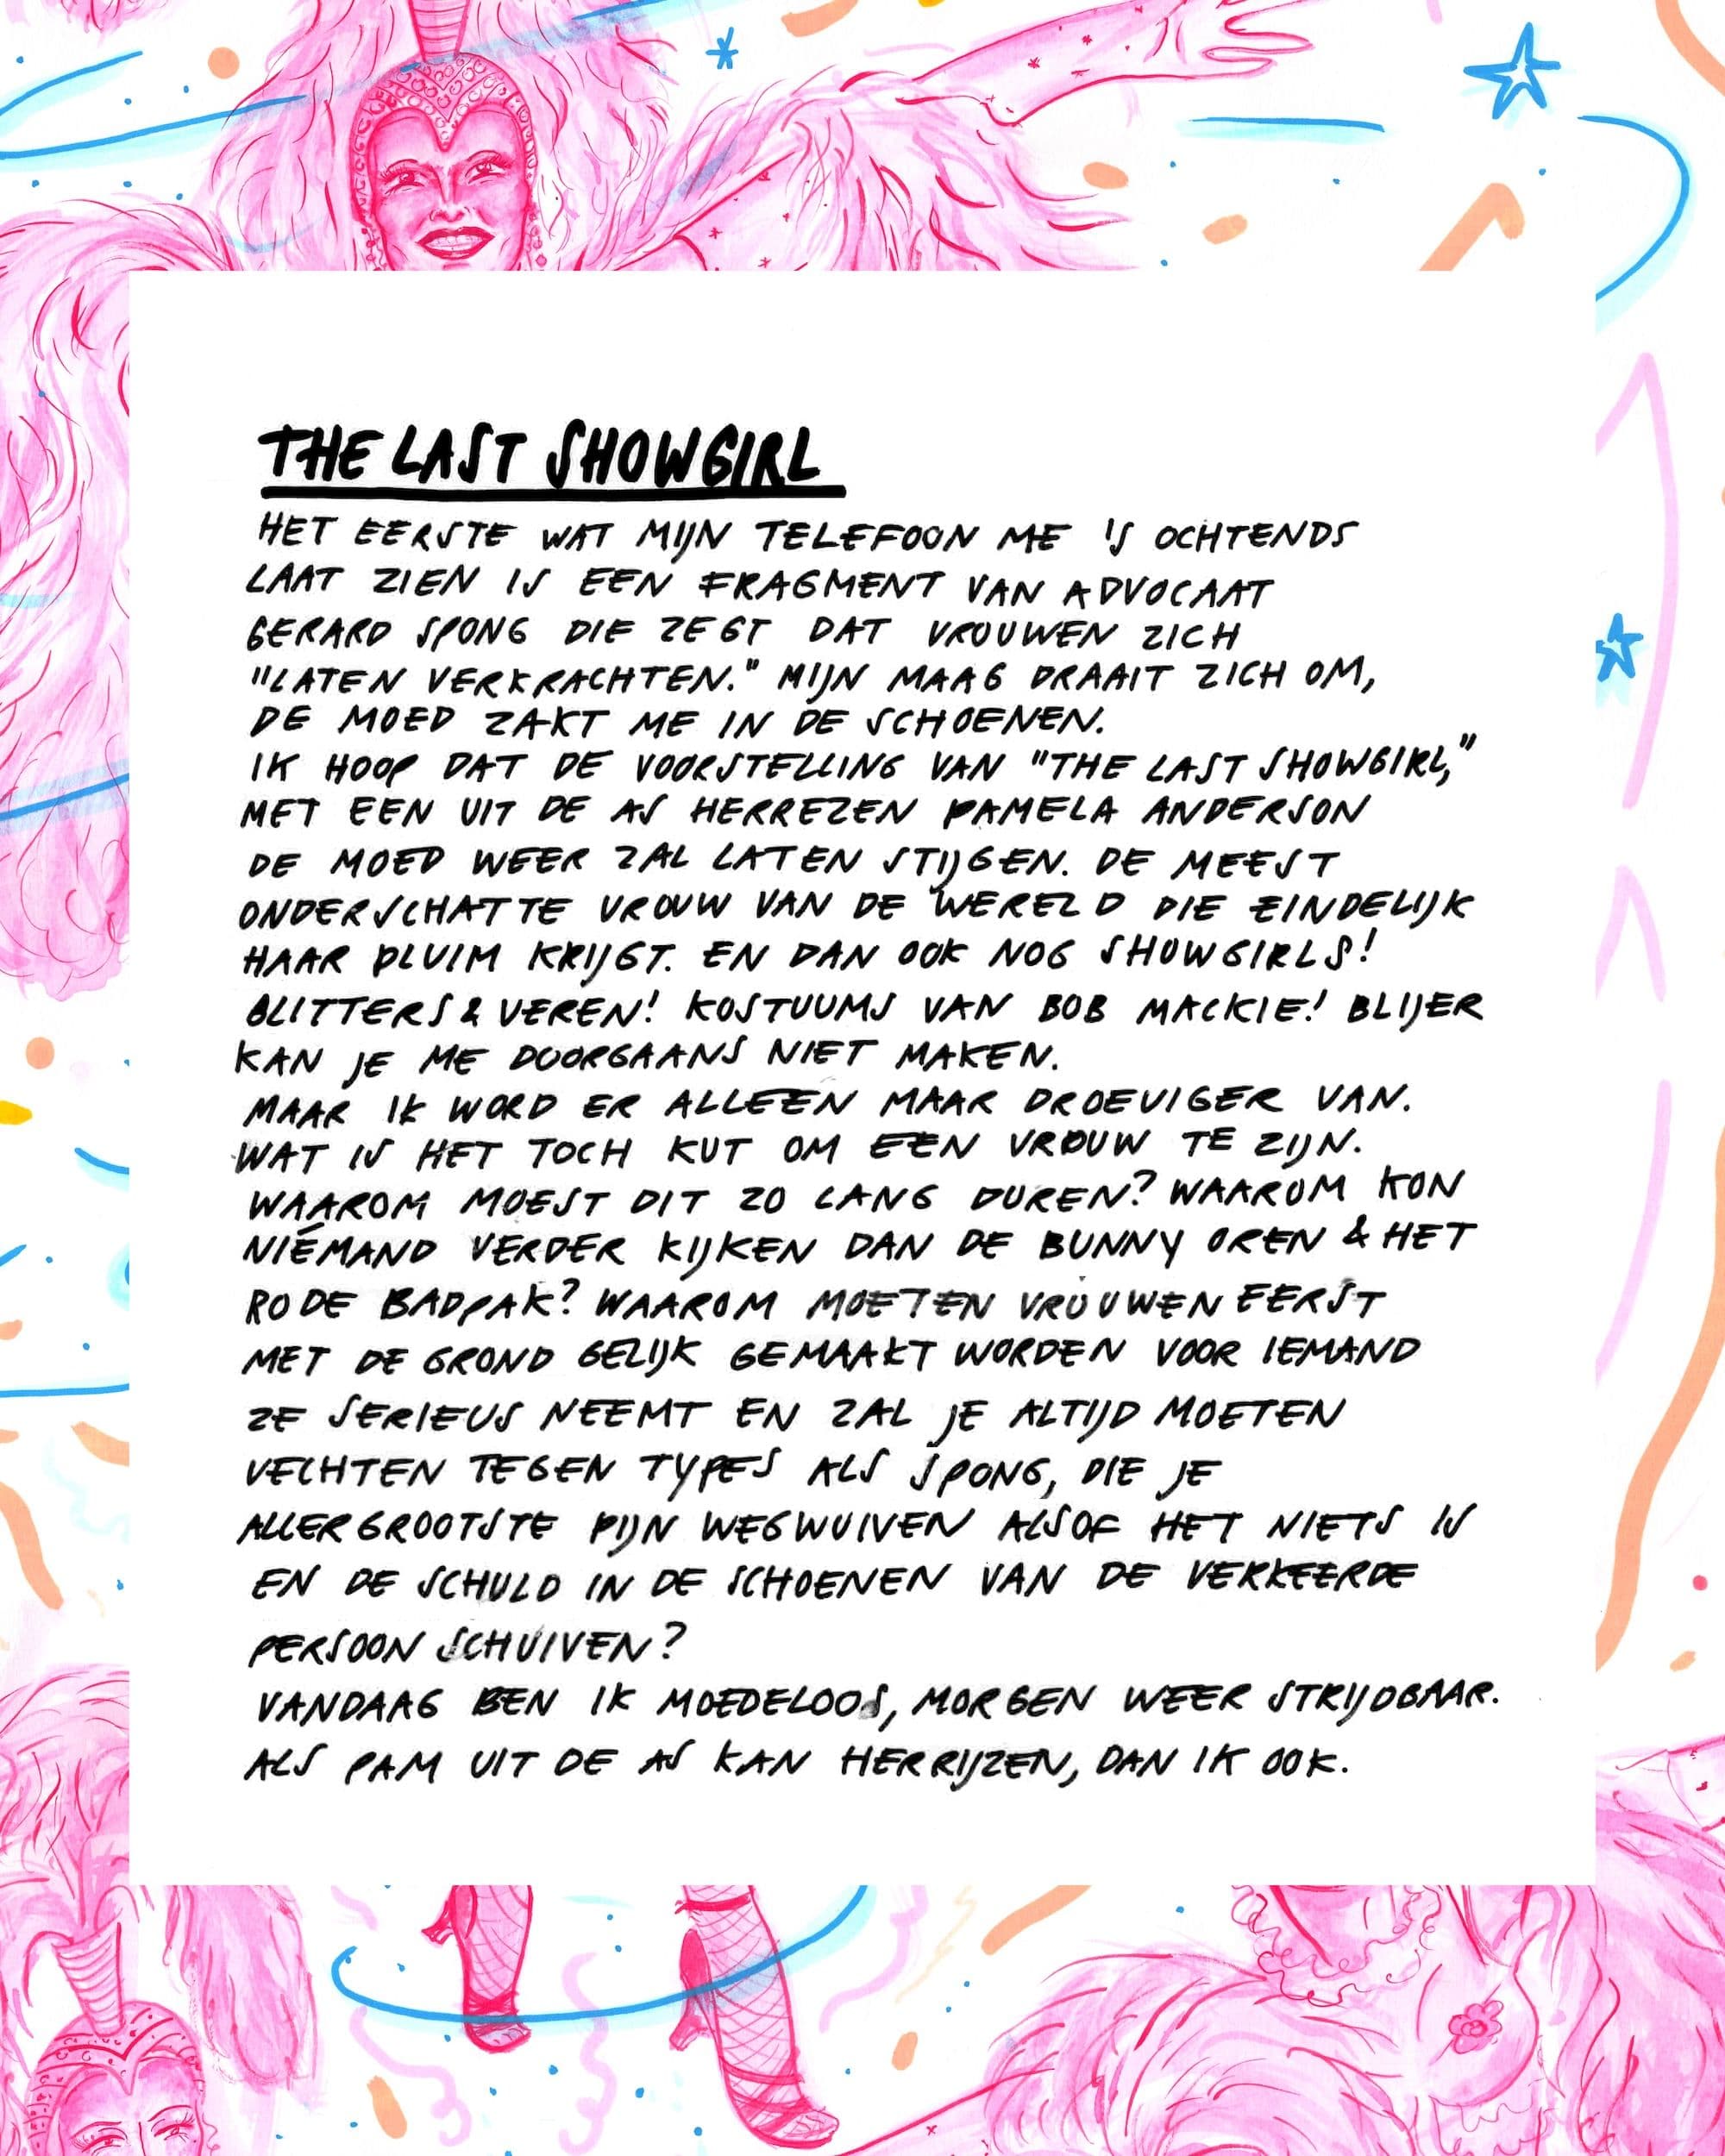 THE LAST SHOWGIRL
HET EERSTE WAT MIJN TELEFOON ME 'S OCHTENDS
LAAT ZIEN IS EEN FRAGMENT VAN ADVOCAAT
GERARD SPONG DIE ZEGT DAT VROUWEN ZICH
"LATEN VERKRACHTEN." MIJN MAAG DRAAIT ZICH OM,
DE MOED ZAKT ME IN DE SCHOENEN.
IK HOOP DAT DE VOORSTELLING VAN "THE LAST SHOWGIRL,"
MET EEN UIT DE AS HERREZEN PAMELA ANDERSON
DE MOED WEER ZAL LATEN STIJGEN. DE MEEST
ONDERSCHATTE VROUW VAN DE WERELD DIE EINDELIJK
HAAR PLUIM KRIJGT. EN DAN OOK NOG SHOWGIRLS!
GLITTERS & VEREN! KOSTUUMS VAN BOB MACKIE! BLIJER
KAN JE ME DOORGAANS NIET MAKEN.
MAAR IK WORD ER ALLEEN MAAR DROEVIGER VAN.
WAT IS HET TOCH KUT OM EEN VROUW TE ZIJN.
WAAROM MOEST DIT ZO LANG DUREN? WAAROM KON
NIÉMAND VERDER KIJKEN DAN DE BUNNY OREN & HET
RODE BADPAK? WAAROM MOETEN VROUWEN EERST
MET DE GROND GELIJK GEMAAKT WORDEN VOOR IEMAND
ZE SERIEUS NEEMT EN ZAL JE ALTIJD MOETEN
VECHTEN TEGEN TYPES ALS SPONG, DIE JE
ALLERGROOTSTE PIJN WEGWUIVEN ALSOF HET NIETS IS
EN DE SCHULD IN DE SCHOENEN VAN DE VERKEERDE
PERSOON SCHUIVEN?
VANDAAG BEN IK MOEDELOOS, MORGEN WEER STRIJDBAAR.
ALS PAM UIT DE AS KAN HERRIJZEN, DAN IK OOK.